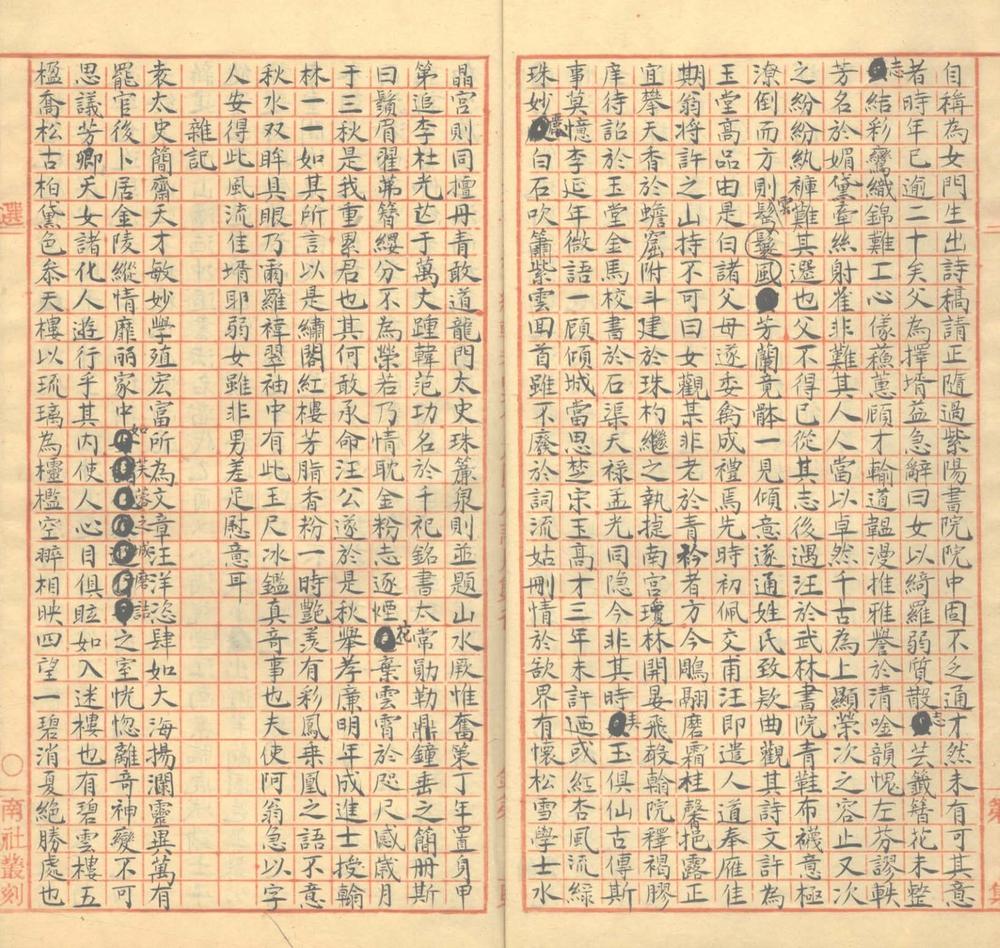 自稱為女門生出詩稿請正隨過紫陽書院院中固不乏通才然未有可其意
者時年已逾二十矣父為擇壻益急辭曰女以綺羅弱質散志芸籤簪花未整
志結彩鸞織錦難工心儀蘓蕙顧才輸道韞漫推雅譽於清唫韻愧左芬謬軼
芳名於媚黛牽絲射雀非難其人人當以卓然千古為上顯榮次之容止又次
之紛紛紈褲難其選也父不得已從其志後遇汪於武林書院青鞋布襪意極
潦倒而方則鬈雲鬟風芳蘭竟體一見傾意遂通姓氏致欵曲觀其詩文許為
玉堂高品由是白諸父母遂委禽成禮馬先時初佩交甫汪即遣人道奉雁佳
期翁將許之山持不可曰女觀某非老於青衿者方今鵰翮磨霜桂馨挹露正
宜攀天香於蟾窟附斗建於珠杓繼之執㨗南宮瓊林開晏飛觳翰院釋褐膠
庠待詔於玉堂金馬校書於石渠天禄孟光同隐今非其時夫玉俱仙古傳斯
事莫憶李延年微語一顧傾城當思楚宋玉高才三年未許迺或紅杏風流緑
珠妙白石吹簫紫雲回首雖不廢於詞流姑刪情於欲界有懷松雪學士水
晶宮則同擅丹青敢道龍門太史珠簾泉則並題山水厥惟奮策丁年置身甲
第追李杜光芒于萬丈踵韓范功名於千祀銘書太常勛勒鼎鐘垂之簡册斯
曰鬚眉翟茀簪纓分不為榮若乃情耽金粉志逐煙花棄雲霄於咫尺感歲月
于三秋是我重累君也其何敢承命汪公遂於是秋舉孝廉明年成進士授翰
林一一如其所言以是繡閣紅樓芳脂香粉一時艶羨有彩鳳乗凰之語不意
秋水双眸具眼乃爾羅褘翠袖中有此玉尺冰鑑真奇事也夫使阿翁急以字
人安得此風流佳壻耶弱女雖非男差足慰意耳
雜記
袁太史簡齋天才敏妙學殖宏富所為文章汪洋恣肆如大海揚瀾靈異萬有
罷官後卜居金陵縱情靡丽家中如芙蓉之城磨詰之室恍惚離奇神變不可
思議芳卿夭女諸化人遊行乎其内使人心目俱眩如入迷樓也有碧雲樓五
楹喬松古柏黛色叅天樓以琉璃為欞檻空翠相映四望一碧消夏絶勝處也
選
南社叢刻